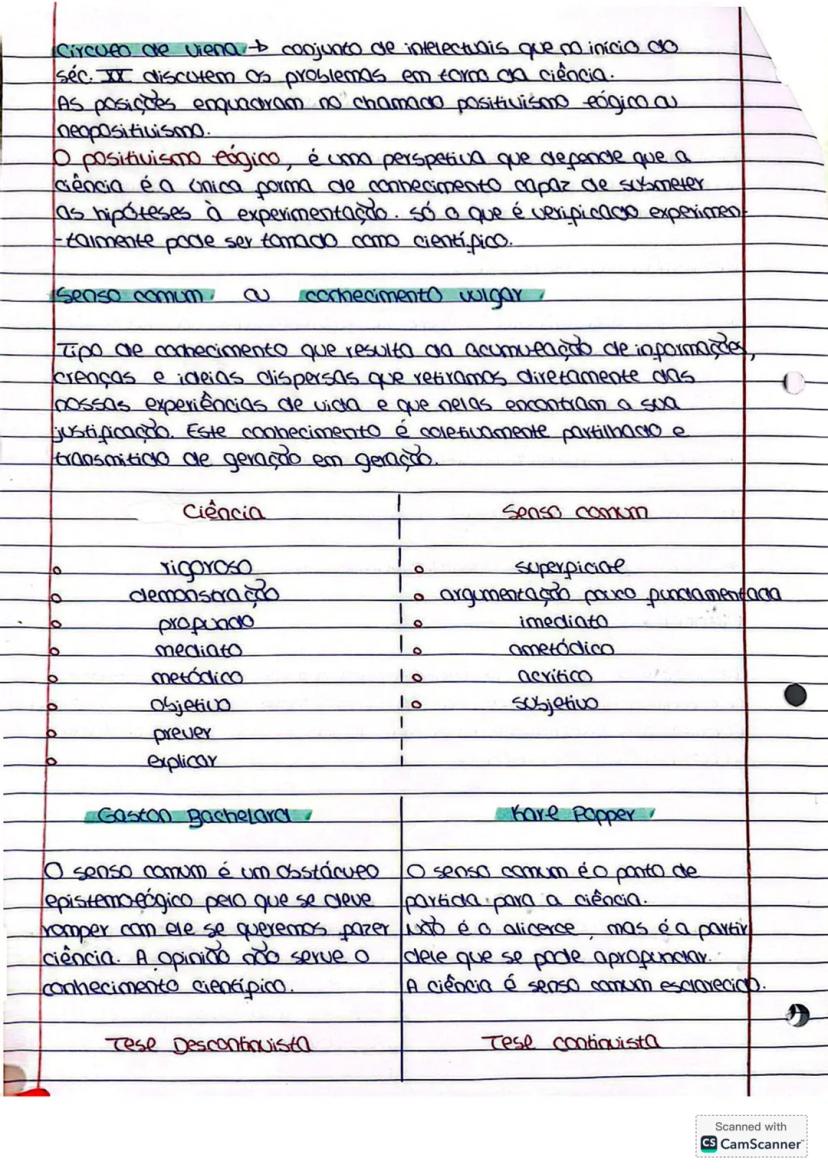 Círculo de Viena → conjunto de intelectuais que no início do
séc. XX discutem os problemas em torno da ciência.
As posições enquadram no chamado positivismo lógico ou
neopositivismo.
O positivismo lógico, é uma perspetiva que defende que a
ciência é a única forma de conhecimento capaz de submeter
as hipóteses à experimentação. só o que é verificado experimen-
-talmente pode ser tomado como científico.
Senso comum ou conhecimento vulgar
Tipo de conhecimento que resulta da acumulação de informações,
crenças e ideias dispersas que retiramos diretamente das
nossas experiências de vida e que nelas encontram a sua
justificação. Este conhecimento é coletivamente partilhado e
transmitido de geração em geração.
Ciência Senso comum
o rigoroso o superficial
o demonstração o argumentação pouco fundamentada
o profundo o imediato
o mediato o ametódico
o metódico o acrítico
o objetivo o subjetivo
o prever
o explicar
Gaston Bachelard
O senso comum é um obstáculo
epistemológico pelo que se deve
romper com ele se queremos fazer
ciência. A opinião não serve o
conhecimento científico.
Tese Descontinuista
Karl Popper
O senso comum é o ponto de
partida para a ciência.
Não é o alicerce, mas é a partir
dele que se pode aprofundar.
A ciência é senso comum esclarecido.
Tese continuista
Scanned with
CS CamScanner